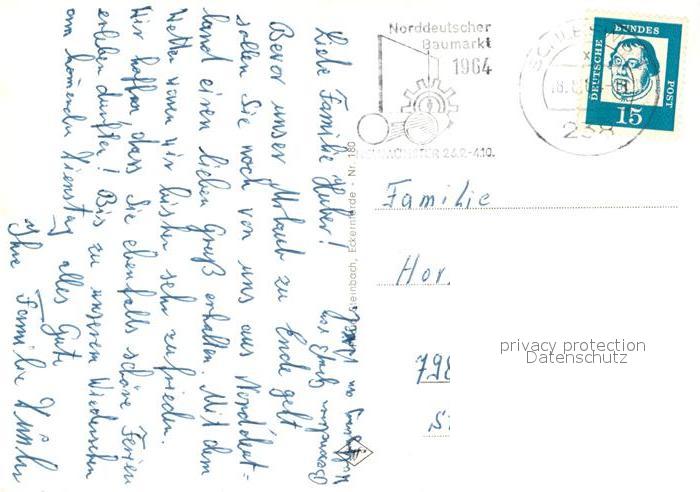 Liebe Familie Huber!
Bevor unser Urlaub zu Ende geht
sollen Sie noch von uns aus Norddeutsch=
land einen lieben Gruß erhalten. Mit dem
Wetter waren wir bisher sehr zufrieden.
Wir hoffen, dass Sie ebenfalls schöne Ferien
erleben durften! Bis zu unserem Wiedersehen
am kommenden Dienstag alles Gute
Ihre Familie
Besonderen Gruß
Steinbach, Eckernförde - Nr. 180
Norddeutscher
Baumarkt
1964
NEUMÜNSTER 26.9.-4.10.
SCHLESWIG
238
DEUTSCHE BUNDESPOST
15
Familie
Hor.
798
privacy protection
Datenschutz